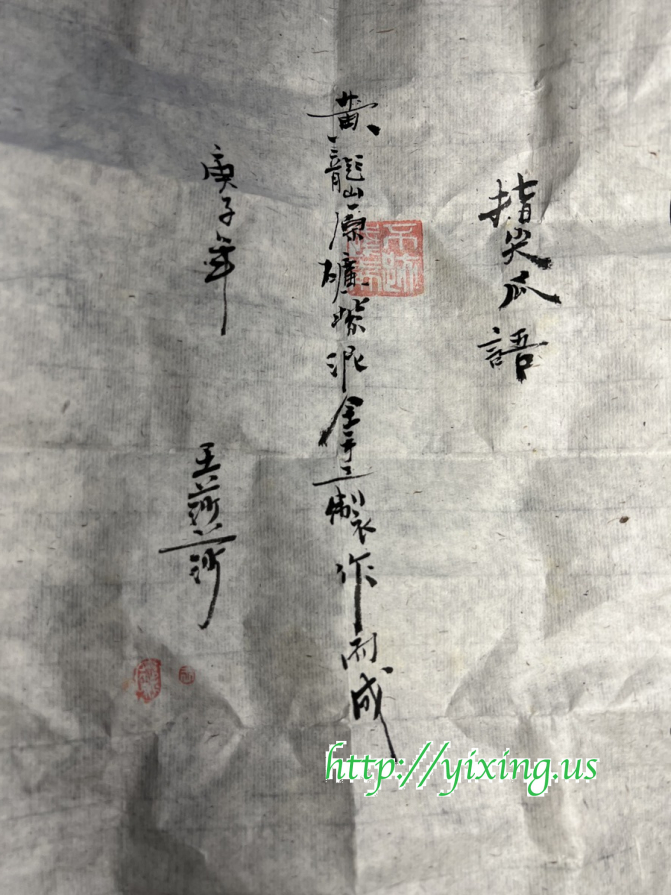 指尖瓜語
黄龍山原礦紫泥全手工製作而成
庚子年
王莎莎
http://yixing.us